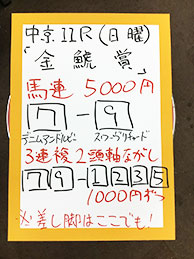 中京11R(日曜)
「金鯱賞」
馬連 5000円
7-9
デニムアンドルビー スワーヴリチャード
3連複2頭軸ながし
79-1235
1000円ずつ
※差し脚はここでも!